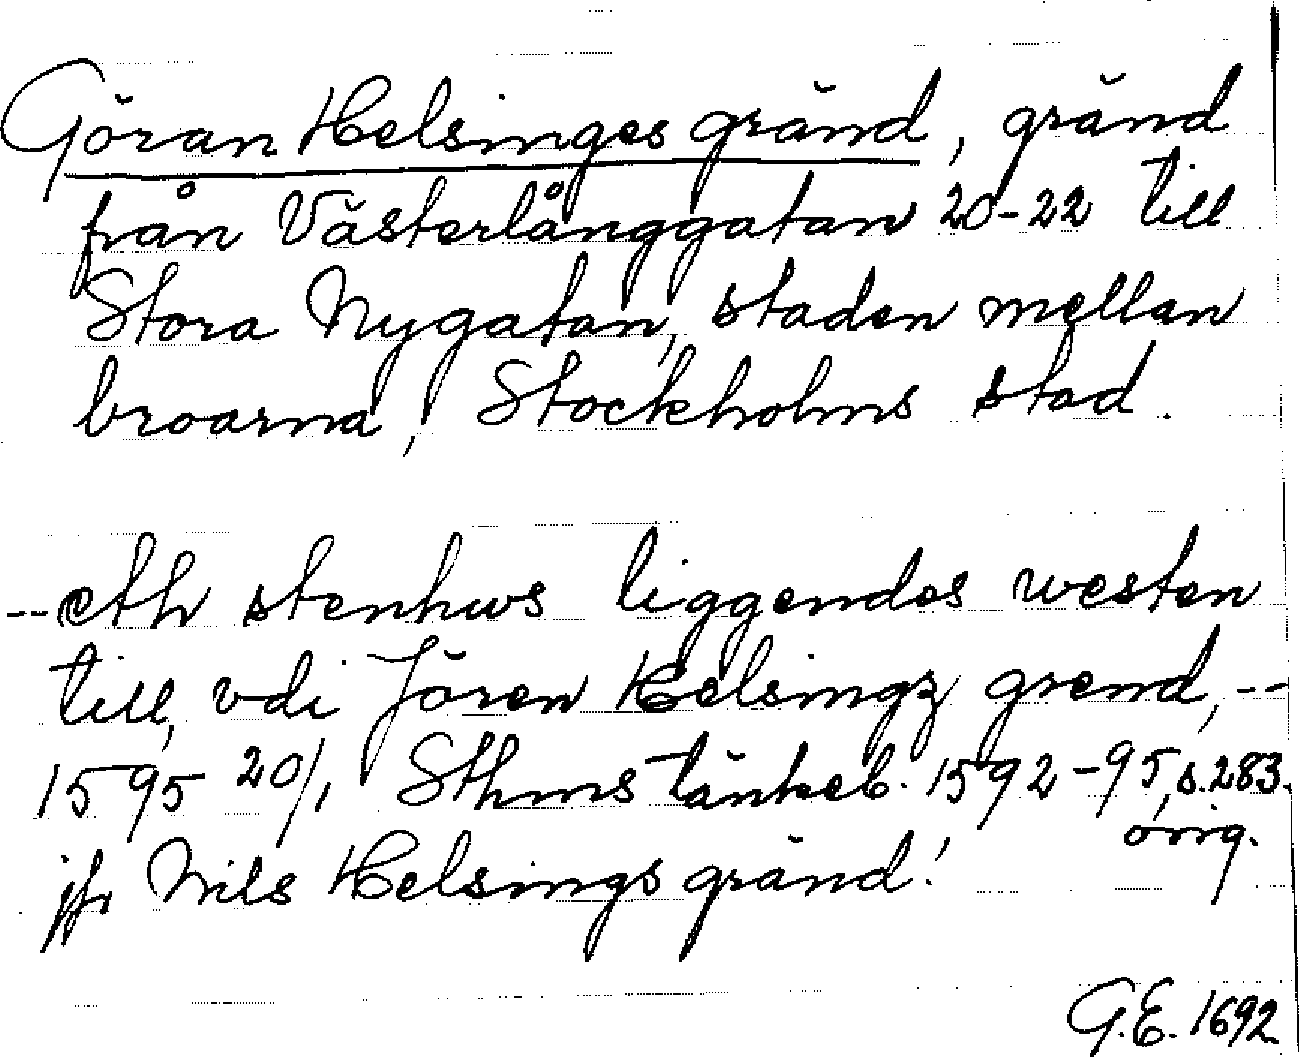 Göran Helsinges gränd, gränd
från Västerlånggatan 20-22 till
Stora Nygatan, staden mellan
broarna, Stockholms stad.
--eth stenhws liggendes westen
till, vdi Jören Helsingz grend, --
1595 20/1 Sthms tänkeb. 1592-95, s. 283.
orig.
jfr Nils Helsings gränd!
G.E. 1692